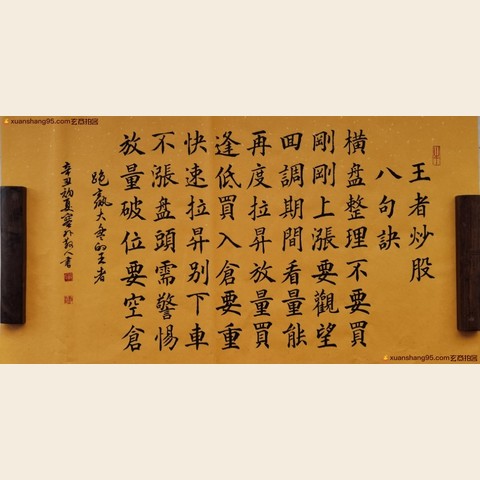 xuanshang95.com
王者炒股
八句訣
橫盤整理不要買
剛剛上漲要觀望
回調期間看量能
再度拉昇放量買
逢低買入倉要重
快速拉昇别下車
不漲盤頭需警惕
放量破位要空倉
跑赢大盘的王者
辛丑初夏 書
xuanshang95.com